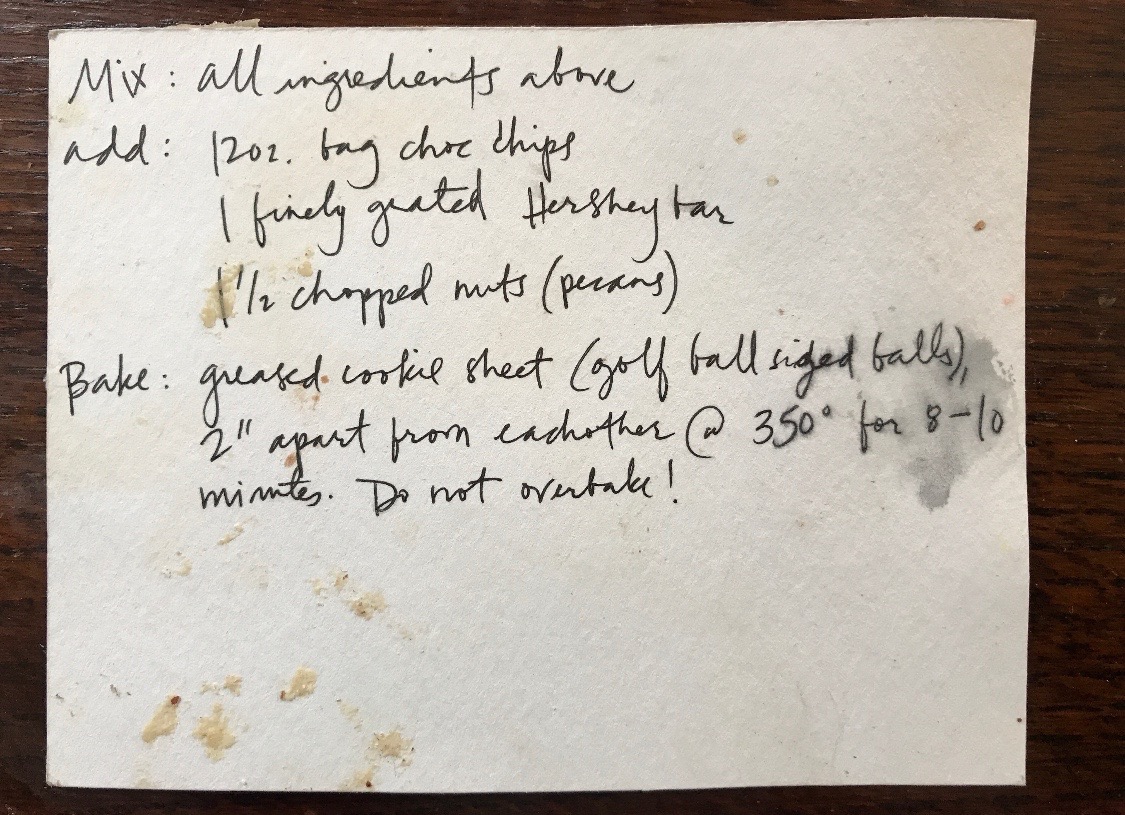 Mix: all ingredients above
add: 12oz. bag choc chips
1 finely grated Hershey bar
1 1/2 chopped nuts (pecans)
Bake: greased cookie sheet (golf ball sized balls),
2" apart from eachother @ 350° for 8-10
minutes. Do not overbake!